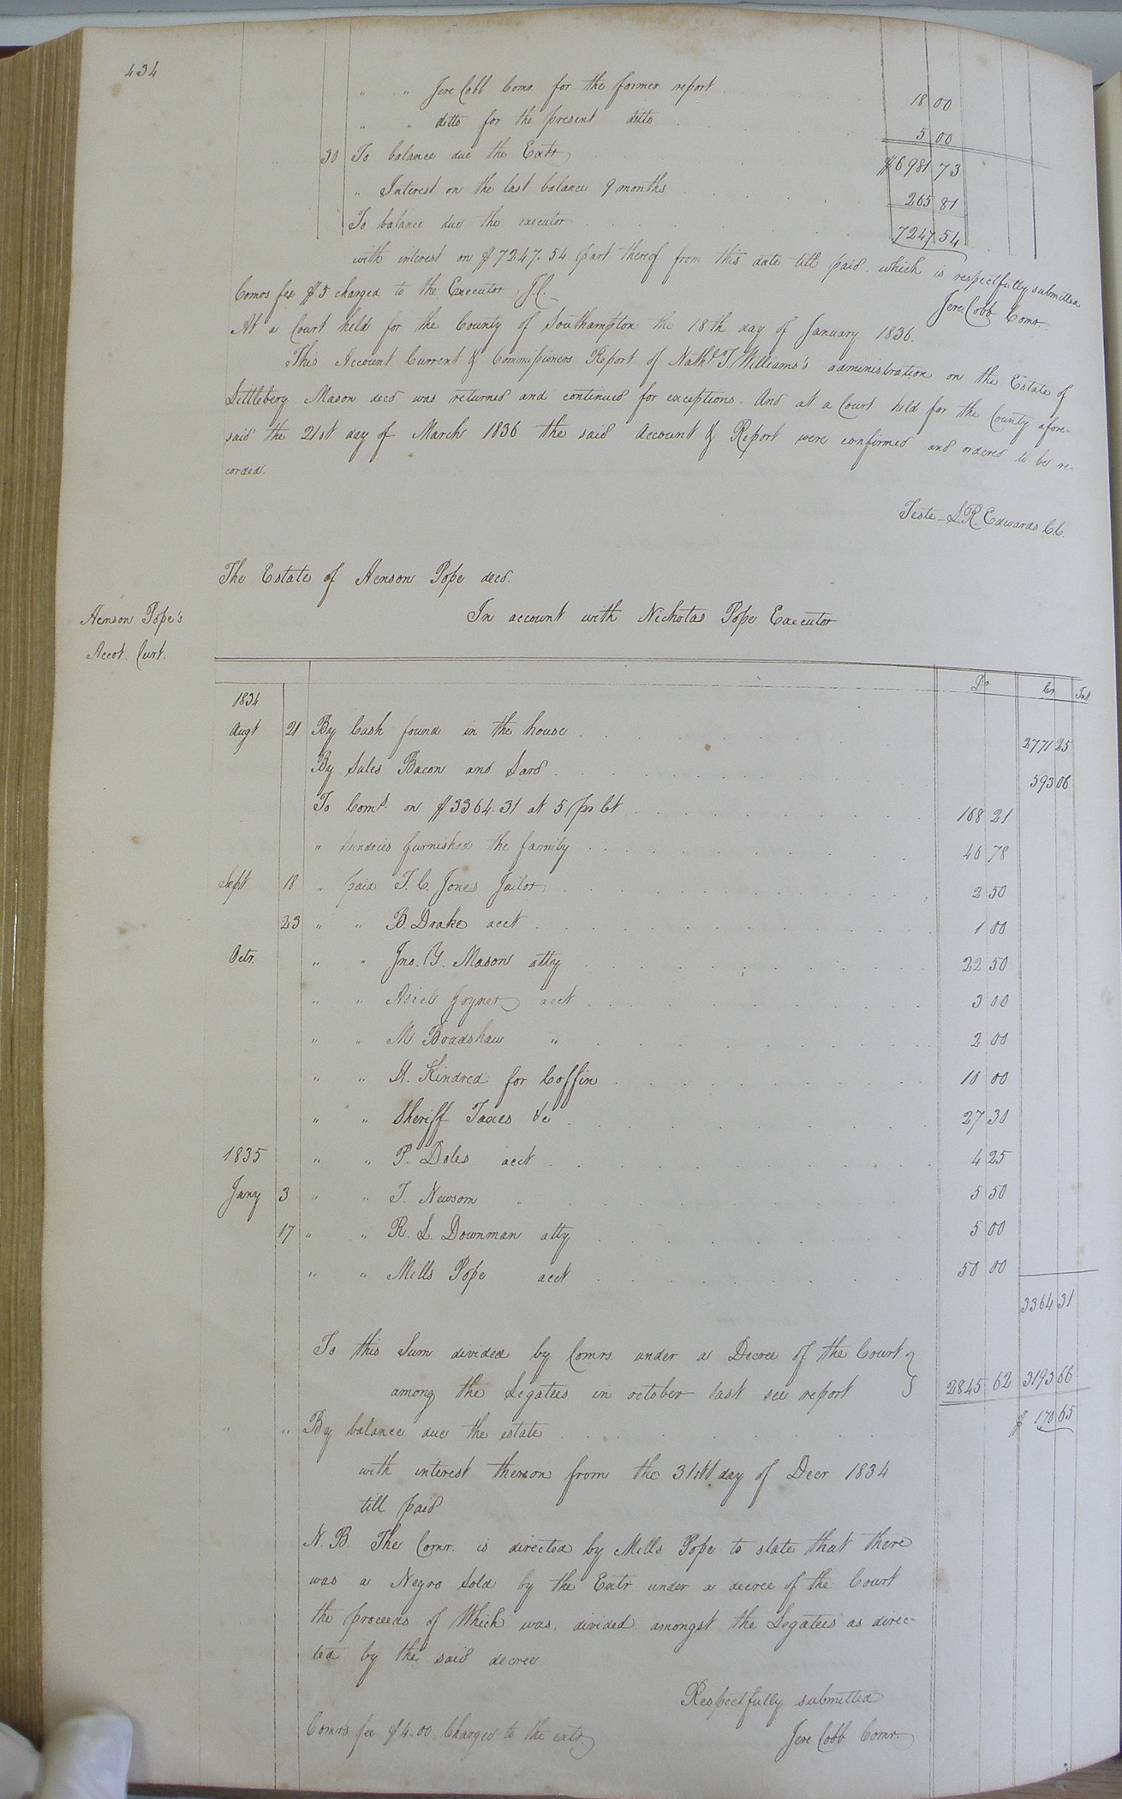 434
" " Jere Cobb Comr for the former report 18 00
" " ditto for the present ditto 5 00
30 To balance due the Extr $6981 73
" Interest on the last balance 9 months 265 81
To balance due the executor 7247 54
with interest on $7247.54 part thereof from this date till paid. which is respectfully submitted
Comrs fee $5 charged to the Executor J.C. Jere Cobb Comr
At a Court held for the County of Southampton the 18th day of January 1836.
This Account Current & Commissioners Report of Nathl T. Williams's administration on the Estate of
Littlebery Mason decd was returned and continued for exceptions. And at a Court held for the County afore-
said the 21st day of March 1836 the said Account & Report were confirmed and ordered to be re-
corded.
Teste L.R. Edwards C.C.
The Estate of Henson Pope decd.
In account with Nicholas Pope Executor
Henson Pope's
Accot. Curt.
Dr Cr Int
1834
Augt 21 By Cash found in the house 2771 25
By Sales Bacon and Lard 593 06
To Comn. on $3364.31 at 5 pr Ct 168 21
" Sundries furnished the family 40 78
Sept 18 " paid T. C. Jones Jailor 2 50
23 " " B. Drake acct 1 00
Octr. " " Jno. Y. Mason atty 22 50
" " Joyner acct 3 00
" " M Bradshaw " 2 00
" " H. Kindred for Coffin 10 00
" " Sheriff Taxes &c 27 30
1835 " " P. Doles acct 4 25
Jany 3 " " T. Newsom " 5 50
17 " " R. L. Downman atty 5 00
" " Mills Pope acct 50 00
3364 31
To this Sum divided by Comrs. under a Decree of the Court
among the Legatees in october last see report 2845 62 3193 66
" " By balance due the estate $ 170 65
with interest thereon from the 31st day of Decr 1834
till paid
N. B. The Comr. is directed by Mills Pope to state that there
was a Negro Sold by the Extr under a decree of the Court
the proceeds of Which was, divided amongst the Legatees as direc-
ted by the said decree
Respectfully submitted
Comrs fee $4.00 Charged to the extr Jere Cobb Comr.